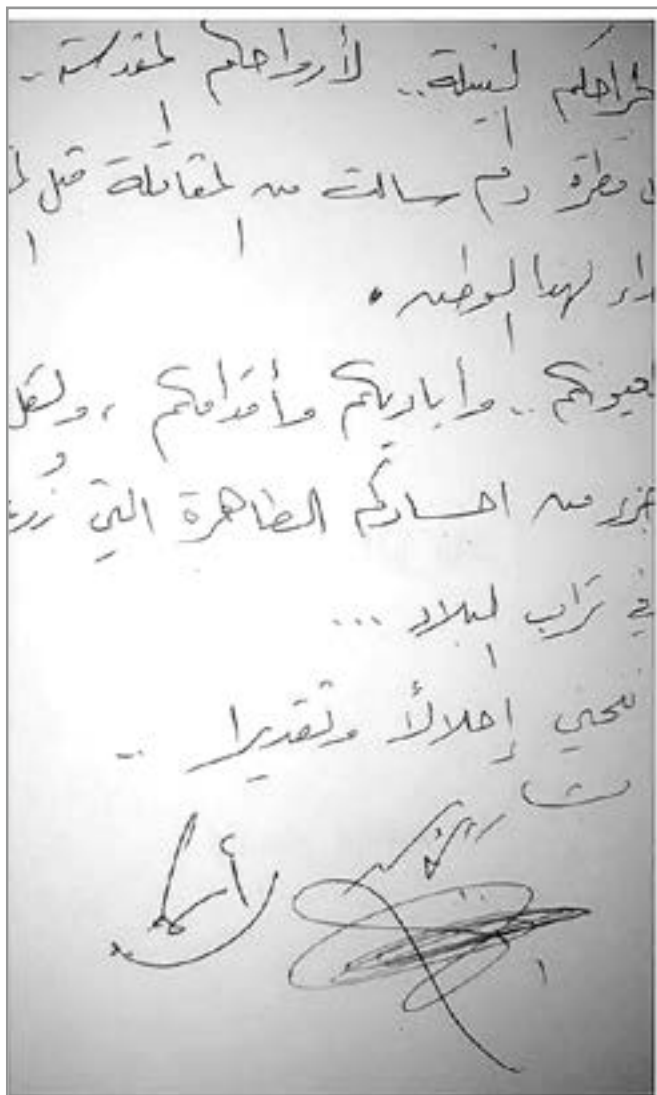 لجراحكم النبيلة.. لأرواحكم المقدسة..
قطرة دم سالت من المقاتلة قبل
لهذا الوطن.
.. وأياديكم وأقدامكم، ولكل
جزء من اجسادكم الطاهرة التي
في تراب البلاد ...
ننحني إجلالاً وتقديرا ..